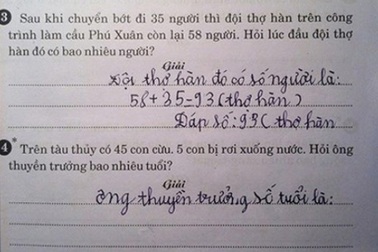 3 Sau khi chuyển bớt đi 35 người thì đội thợ hàn trên công
trình làm cầu Phú Xuân còn lại 58 người. Hỏi lúc đầu đội thợ
hàn đó có bao nhiêu người?
Giải
Đội thợ hàn đó có số người là:
58+35=93 (thợ hàn)
Đáp số: 93 (thợ hàn
4 Trên tàu thủy có 45 con cừu. 5 con bị rơi xuống nước. Hỏi ông
thuyền trưởng bao nhiêu tuổi?
Giải
Ông thuyền trưởng số tuổi là: